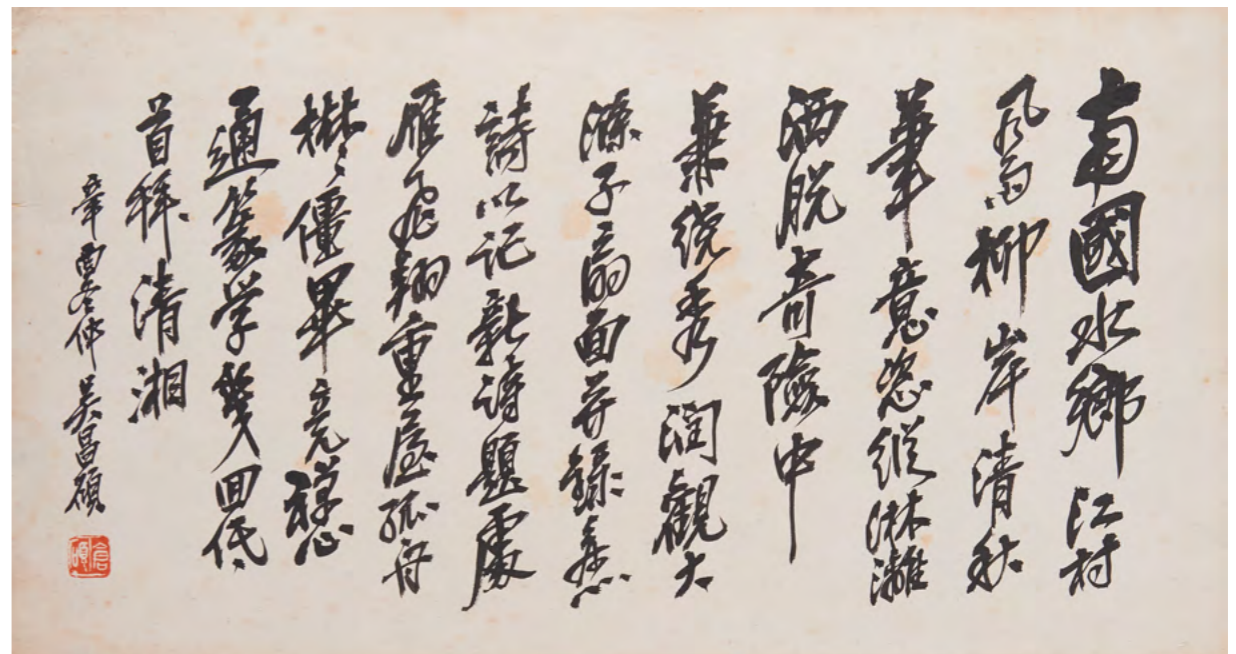 南國水鄉江村
風雨柳岸清秋
筆意恣縱淋灕
洒脱奇險中
兼繞秀潤觀大
滌子扇面並錄
詩以記新詩題處
雁飛翔重屋孤舟
楙〻僵畢竟禪心
通篆學幾回低
首拜清湘
辛酉冬仲吳昌碩
倉碩